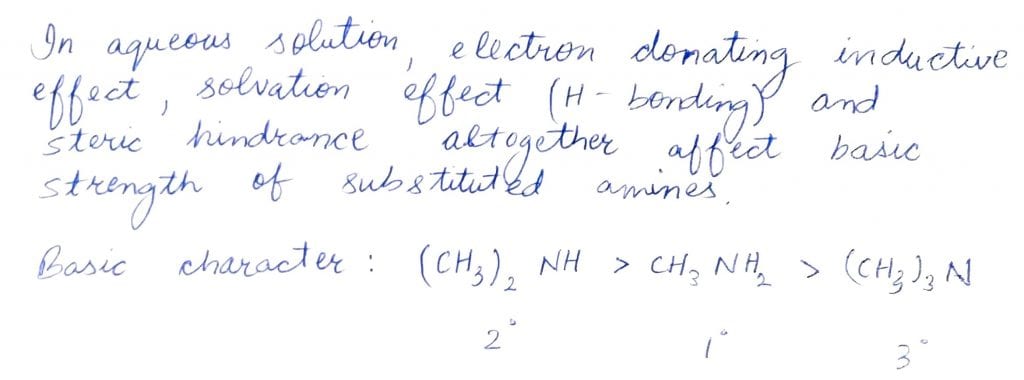 In aqueous solution, electron donating inductive
effect, solvation effect (H-bonding) and
steric hindrance altogether affect basic
strength of substituted amines.
Basic character : (CH₃)₂ NH > CH₃ NH₂ > (CH₃)₃ N
2° 1° 3°